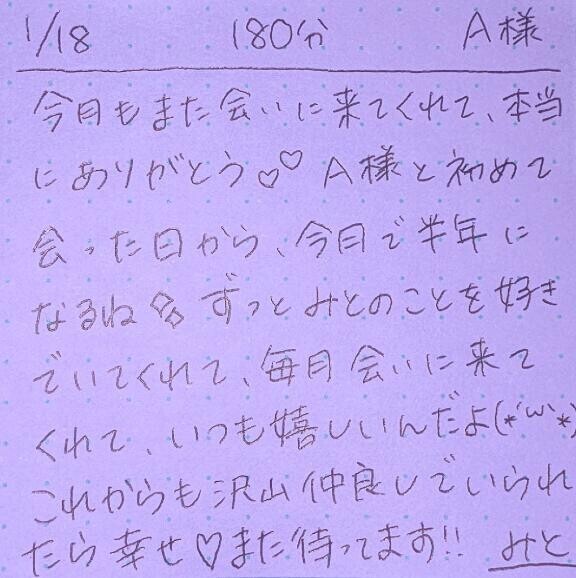 1/18 180分 A様
今月もまた会いに来てくれて、本当
にありがとう♡♡ A様と初めて
会った日から、今月で半年に
なるね ずっとみとのことを好き
でいてくれて、毎月会いに来て
くれて、いつも嬉しいんだよ(*´ω`*)
これからも沢山仲良しでいられ
たら幸せ♡また待ってます!! みと